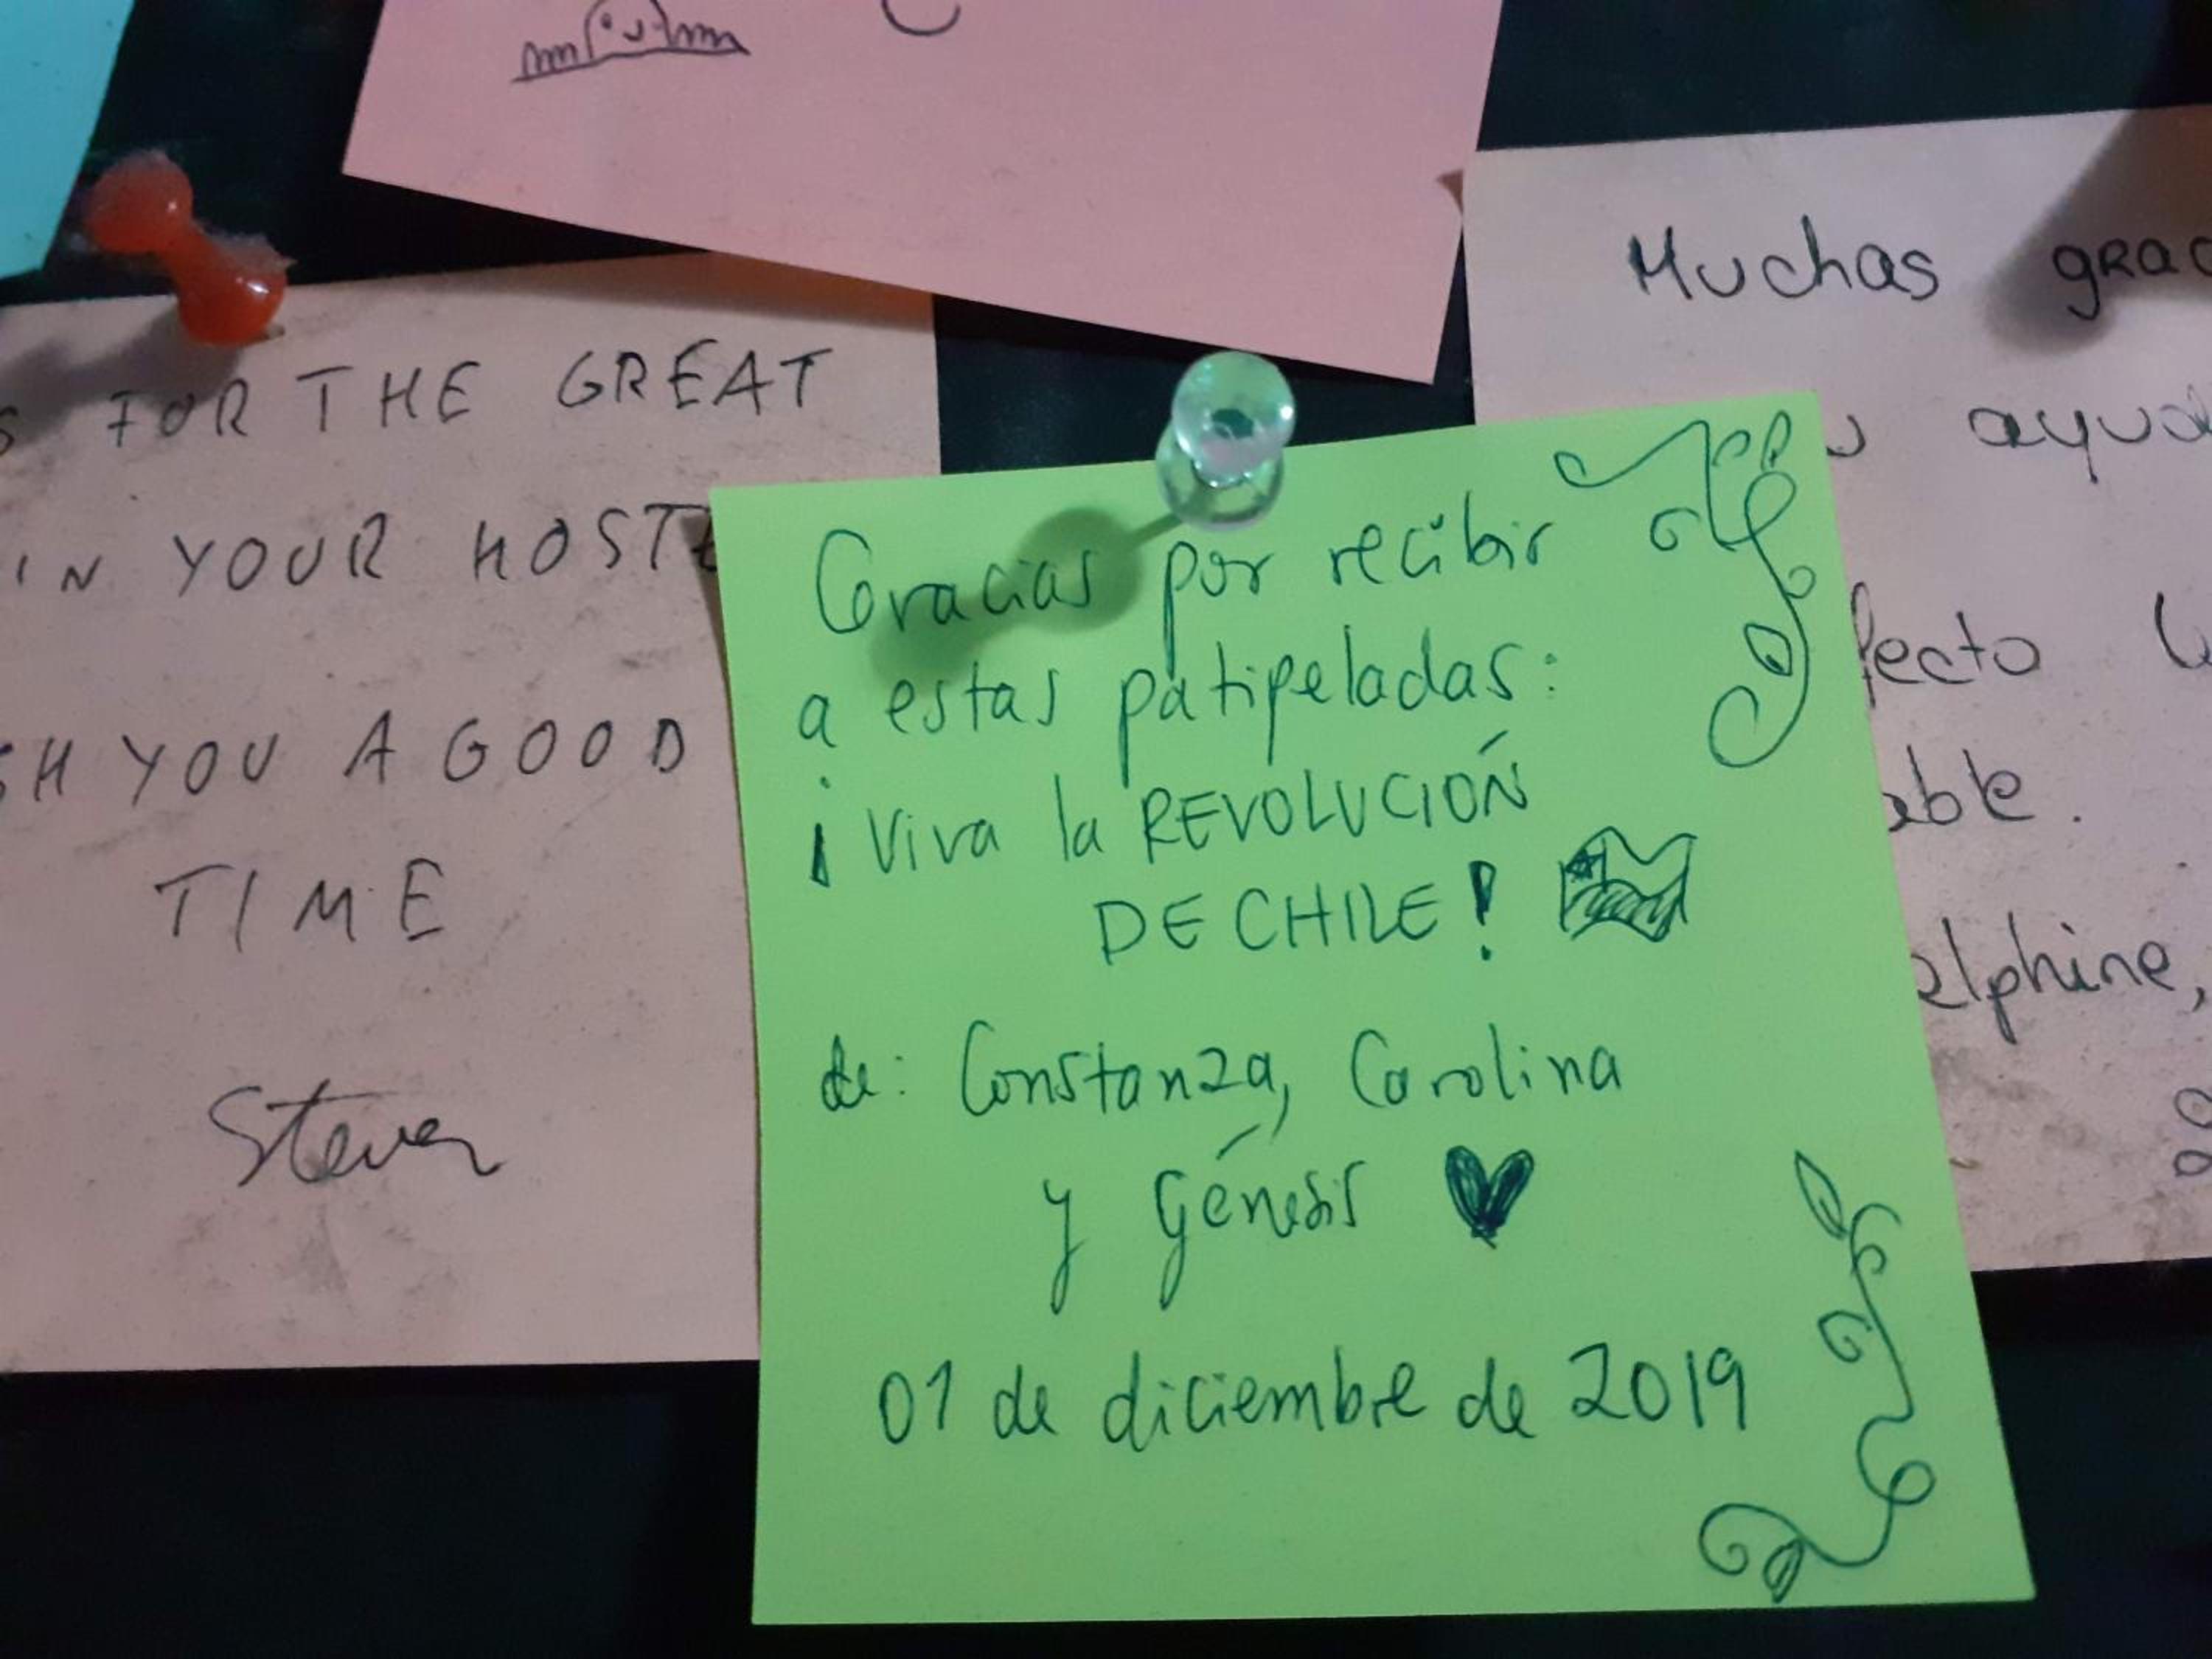 FOR THE GREAT
IN YOUR HOSTE
SH YOU A GOOD
TIME
Steven
Gracias por recibir
a estas patipeladas:
¡Viva la REVOLUCIÓN
DE CHILE!
de: Constanza, Carolina
y Génesis
01 de diciembre de 2019
Muchas grac
ayud
fecto
able.
elphine,